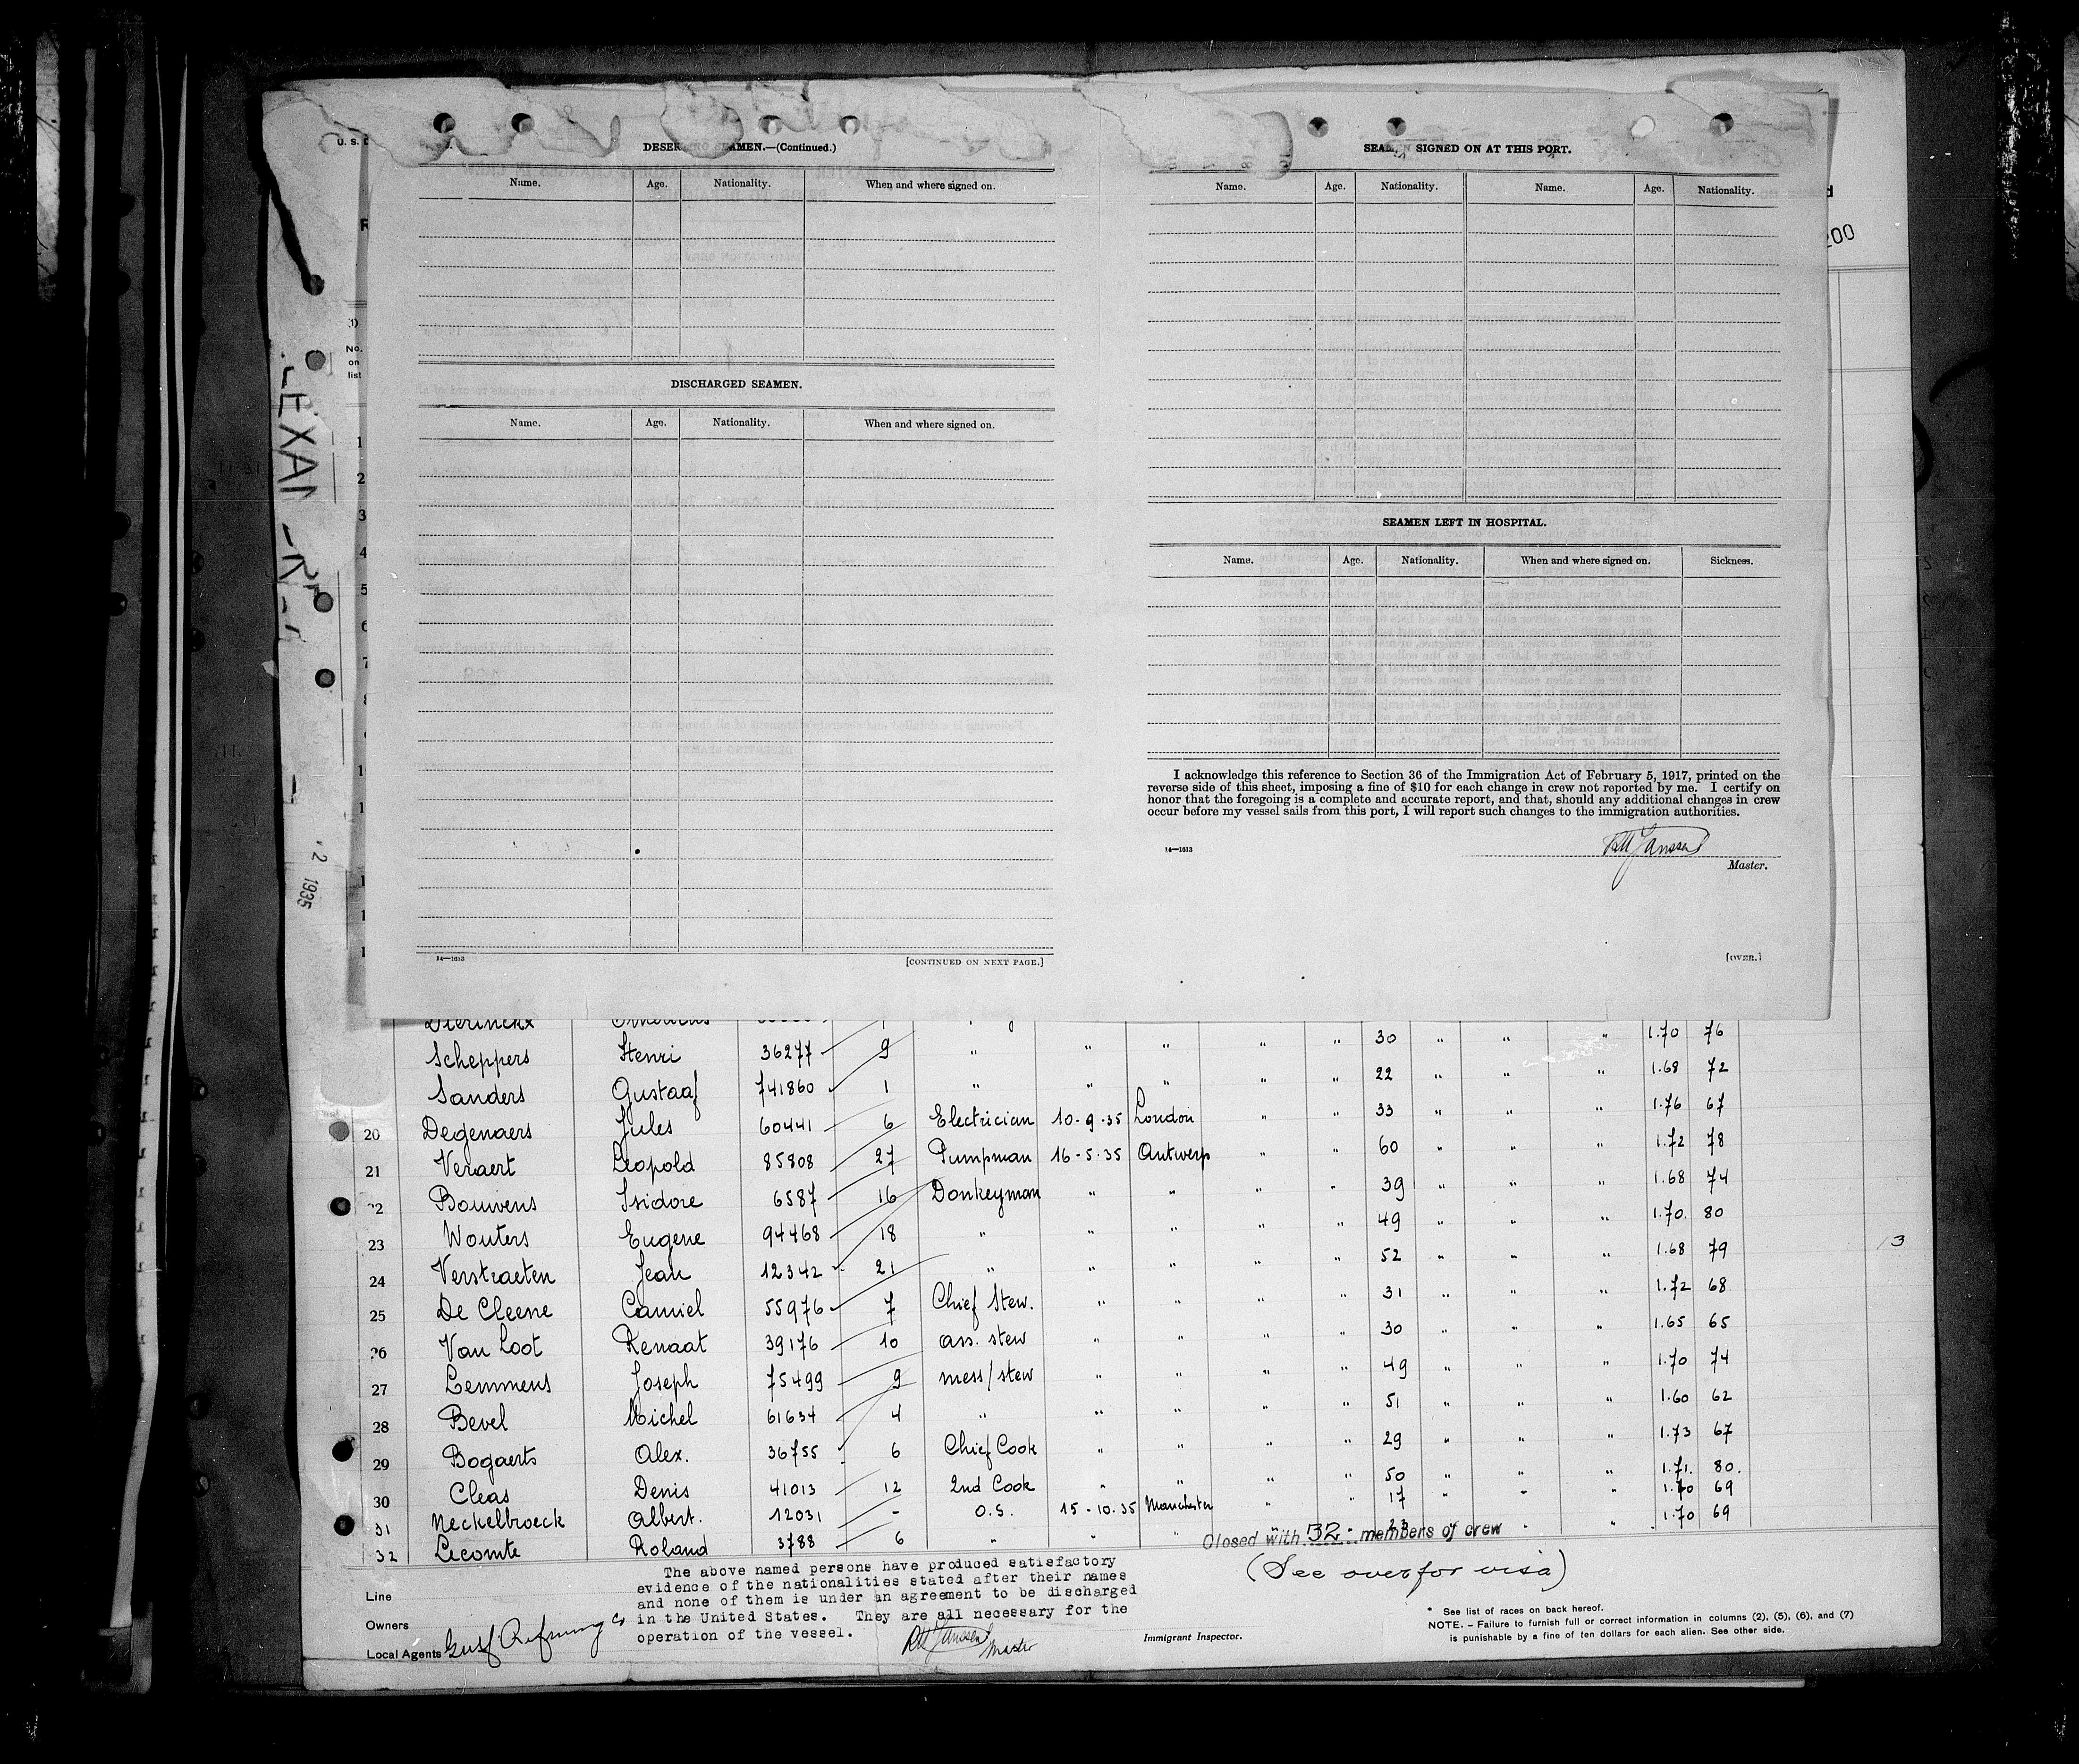 DESER SEAMEN.—(Continued.)
Name. Age. Nationality. When and where signed on.
DISCHARGED SEAMEN.
Name. Age. Nationality. When and where signed on.
14—1613 [CONTINUED ON NEXT PAGE.]
SEAMEN SIGNED ON AT THIS PORT.
Name. Age. Nationality. Name. Age. Nationality.
SEAMEN LEFT IN HOSPITAL.
Name. Age. Nationality. When and where signed on. Sickness.
I acknowledge this reference to Section 36 of the Immigration Act of February 5, 1917, printed on the
reverse side of this sheet, imposing a fine of $10 for each change in crew not reported by me. I certify on
honor that the foregoing is a complete and accurate report, and that, should any additional changes in crew
occur before my vessel sails from this port, I will report such changes to the immigration authorities.
14—1613
Janssen
Master.
[OVER.]
U. S.
200
No.
on
list
1
2
3
4
5
6
7
8
2 1935
Dierinckx 30 " " " 1.70 76
Scheppers Henri 36277 9 " " " " " 22 " " " 1.68 72
Sanders Gustaaf 741860 1 " " " " " 33 " " " 1.76 67
20 Degenaers Jules 60441 6 Electrician 10-9-35 London " " 60 " " " 1.72 78
21 Veraert Leopold 85808 27 Pumpman 16-5-35 Antwerp " " 39 " " " 1.68 74
22 Bouwens Isidore 6587 16 Donkeyman " " " " 49 " " " 1.70. 80
23 Wouters Eugene 94468 18 " " " " " 52 " " " 1.68 79
24 Verstraeten Jean 12342 21 " " " " " 31 " " " 1.72 68
25 De Cleene Camiel 55976 7 Chief Stew. " " " " 30 " " " 1.65 65
26 Van Loot Renaat 39176 10 ass. stew " " " " 49 " " " 1.70 74
27 Lemmens Joseph 75499 9 mess/stew " " " " 51 " " " 1.60 62
28 Bevel Michel 61634 4 " " " " " 29 " " " 1.73 67
29 Bogaerts Alex. 36755 6 Chief Cook " " " " 50 " " " 1.71. 80.
30 Cleas Denis 41013 12 2nd Cook " " " " 17 " " " 1.70 69
31 Neckelbroeck Albert. 12031 - O.S. 15-10-35 Manchester " " 23 " " " 1.70 69
32 Lecomte Roland 3788 6 " " "
13
Closed with 32 members of crew
(See over for visa)
The above named persons have produced satisfactory
evidence of the nationalities stated after their names
and none of them is under an agreement to be discharged
in the United States. They are all necessary for the
operation of the vessel.
Janssen Master
Line
Owners
Local Agents Gulf Refining Co
Immigrant Inspector.
* See list of races on back hereof.
NOTE. – Failure to furnish full or correct information in columns (2), (5), (6), and (7)
is punishable by a fine of ten dollars for each alien. See other side.